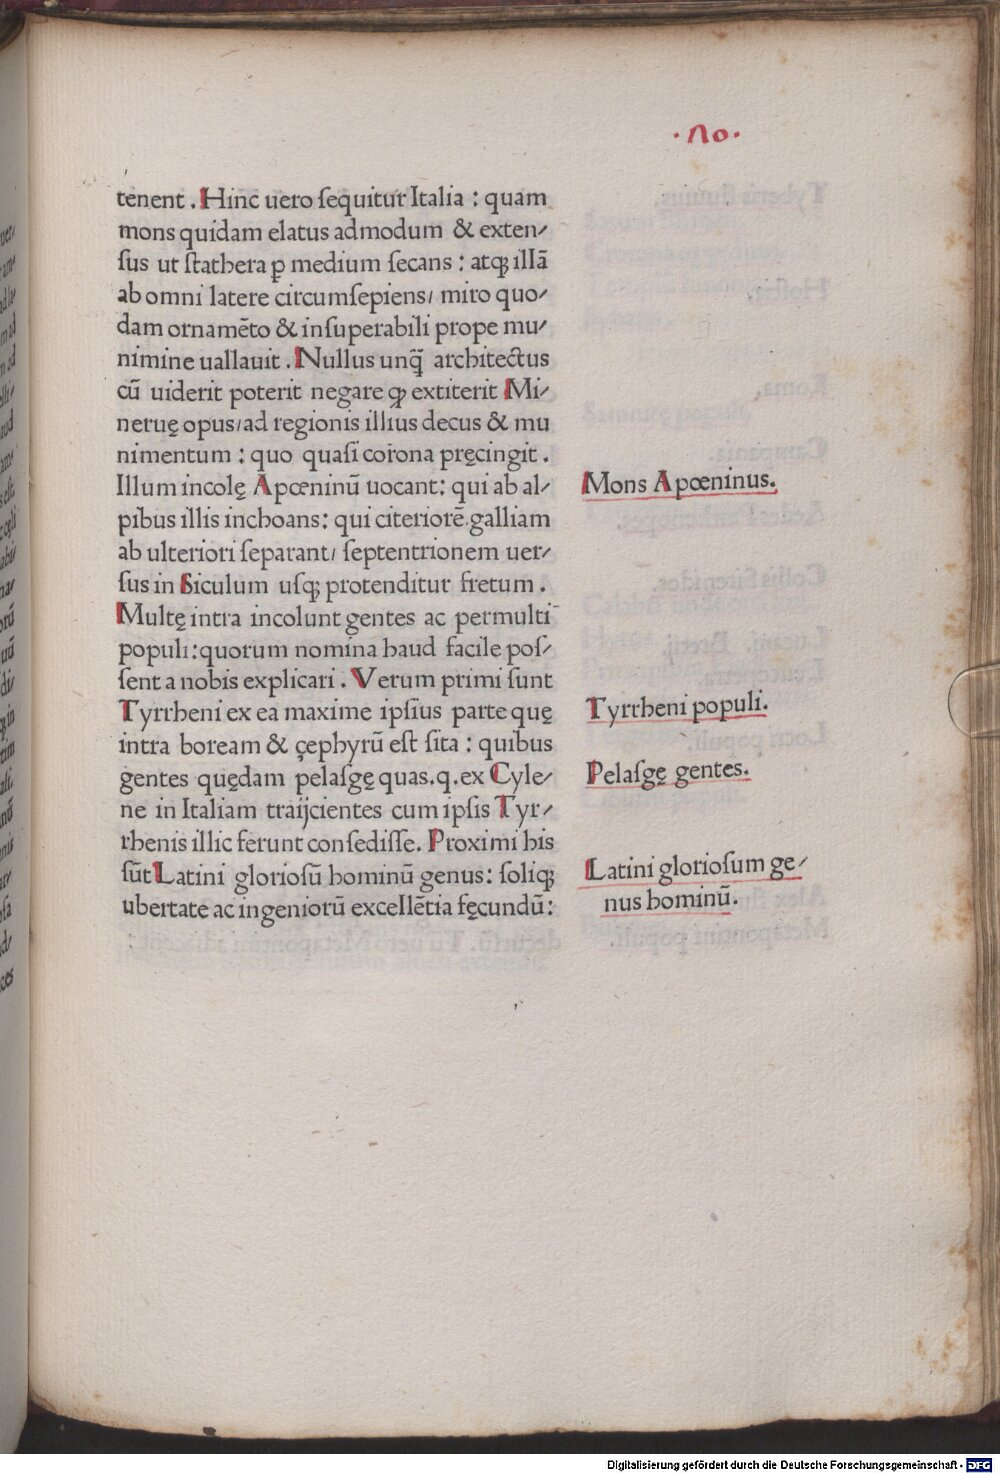 ·Λo·
tenent . Hinc uero ſequitur Italia : quam
mons quidam elatus admodum & exten⸗
ſus ut ſtathera ꝑ medium ſecans : atqꝫ illã
ab omni latere circumſepiens/ miro quo⸗
dam ornamẽto & inſuperabili prope mu⸗
nimine uallauit . Nullus unq̃ architectus
cũ uiderit poterit negare ꝙ extiterit Mi⸗
neruę opus/ad regionis illius decus & mu
nimentum : quo quaſi corona pręcingit .
Illum incolę Apœninũ uocant: qui ab al⸗
pibus illis inchoans: qui citeriorẽ galliam
ab ulteriori ſeparant/ ſeptentrionem uer⸗
ſus in Siculum uſqꝫ protenditur fretum .
Multę intra incolunt gentes ac permulti
populi:quorum nomina haud facile poſ⸗
ſent a nobis explicari . Verum primi ſunt
Tyrrheni ex ea maxime ipſius parte quę
intra boream & çephyrũ eſt ſita : quibus
gentes quędam pelaſgę quas.q.ex Cyle⸗
ne in Italiam traijcientes cum ipſis Tyr⸗
rhenis illic ferunt conſediſſe. Proximi his
sũt Latini glorioſũ hominũ genus: ſoliqꝫ
ubertate ac ingeniorũ excellẽtia fęcundũ:
Mons Apœninus.
Tyrrheni populi.
Pelaſgę gentes.
Latini glorioſum ge⸗
nus hominũ.
Digitalisierung gefördert durch die Deutsche Forschungsgemeinschaft - DFG